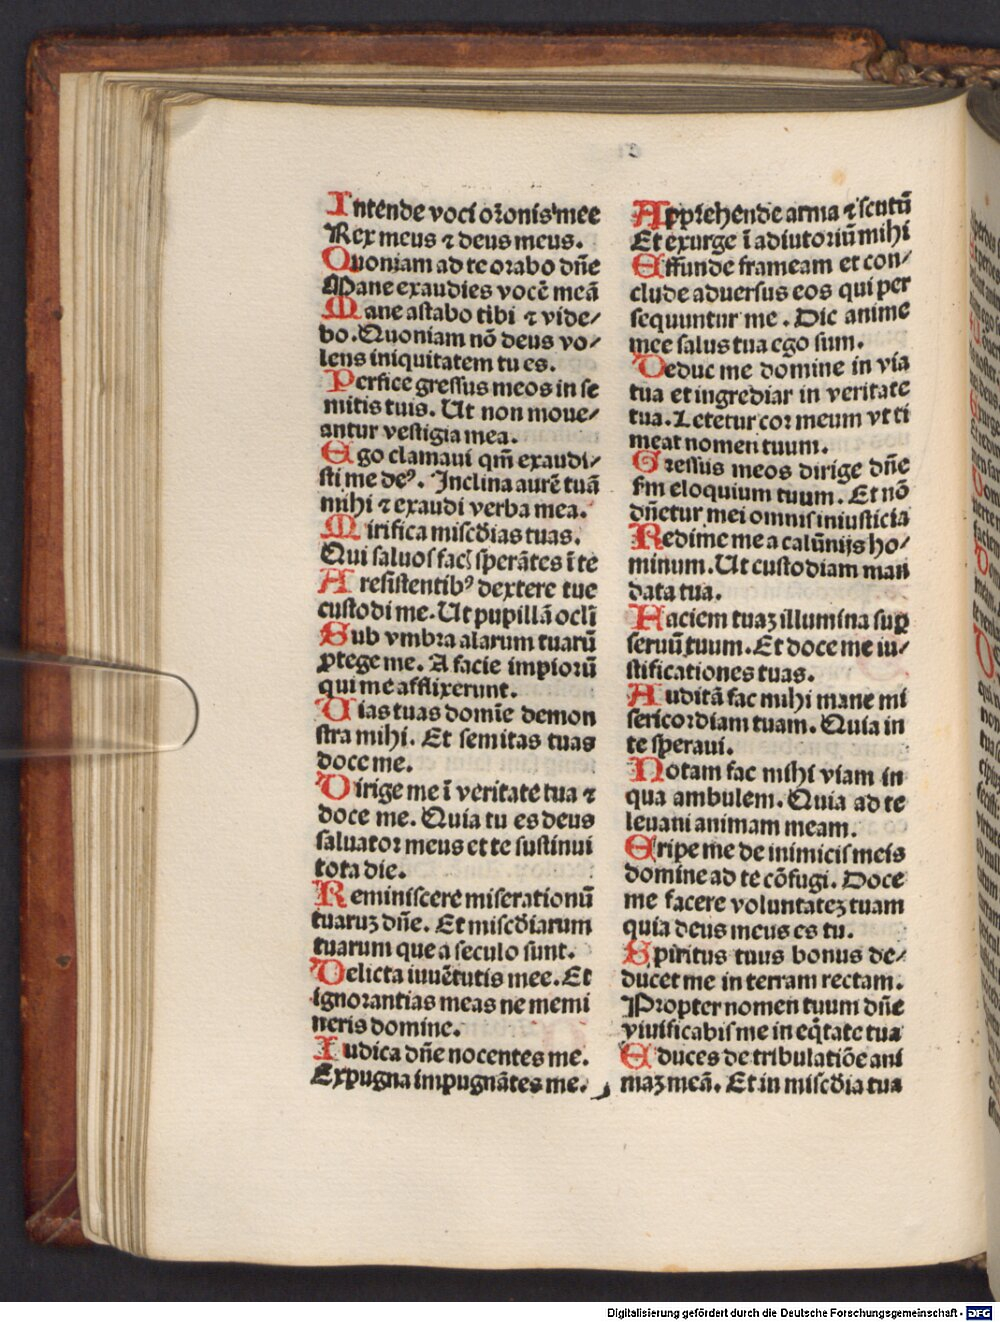 Intende voci oꝛonis mee
Rex meus ⁊ deus meus.
Quoniam ad te orabo dn̄e
Mane exaudies vocē meā
Mane astabo tibi ⁊ vide/
bo. Quoniam nō deus vo/
lens iniquitatem tu es.
Perfice gressus meos in se
mitis tuis. Ut non moue/
antur vestigia mea.
Ego clamaui qm̄ exaudi/
sti me deꝰ. Inclina aurē tuā
mihi ⁊ exaudi verba mea.
Mirifica misc̄dias tuas.
Qui saluos fac̄ sperātes ī te
A resistentibꝰ dextere tue
custodi me. Ut pupillā ocl̄i
Sub vmbꝛa alarum tuarū
ꝓtege me. A facie impioꝛū
qui me afflixerunt.
Vias tuas domīe demon
stra mihi. Et semitas tuas
doce me.
Dirige me ī veritate tua ⁊
doce me. Quia tu es deus
saluatoꝛ meus et te sustinui
tota die.
Reminiscere miserationū
tuaruꝫ dn̄e. Et misc̄diarum
tuarum que a seculo sunt.
Delicta iuuētutis mee. Et
ignorantias meas ne memi
neris domine.
Iudica dn̄e nocentes me.
Expugna impugnātes me.
Appꝛehende arma ⁊ scutū
Et exurge ī adiutoriū mihi
Effunde frameam et con/
clude aduersus eos qui per
sequuntur me. Dic anime
mee salus tua ego sum.
Deduc me domine in via
tua et ingrediar in veritate
tua. Letetur coꝛ meum vt ti
meat nomen tuum.
Gressus meos dirige dn̄e
fm eloquium tuum. Et nō
dn̄etur mei omnis iniusticia
Redime me a calūnijs ho/
minum. Ut custodiam man
data tua.
Faciem tuaꝫ illumina suꝑ
seruū tuum. Et doce me iu/
stificationes tuas.
Auditā fac mihi mane mi
sericoꝛdiam tuam. Quia in
te speraui.
Notam fac mihi viam in
qua ambulem. Quia ad te
leuaui animam meam.
Eripe me de inimicis meis
domine ad te cōfugi. Doce
me facere voluntateꝫ tuam
quia deus meus es tu.
Spiritus tuus bonus de/
ducet me in terram rectam.
Propter nomen tuum dn̄e
viuificabis me in eq̄tate tua
Educes de tribulatiōe ani
maꝫ meā. Et in misc̄dia tua
Digitalisierung gefördert durch die Deutsche Forschungsgemeinschaft - DFG